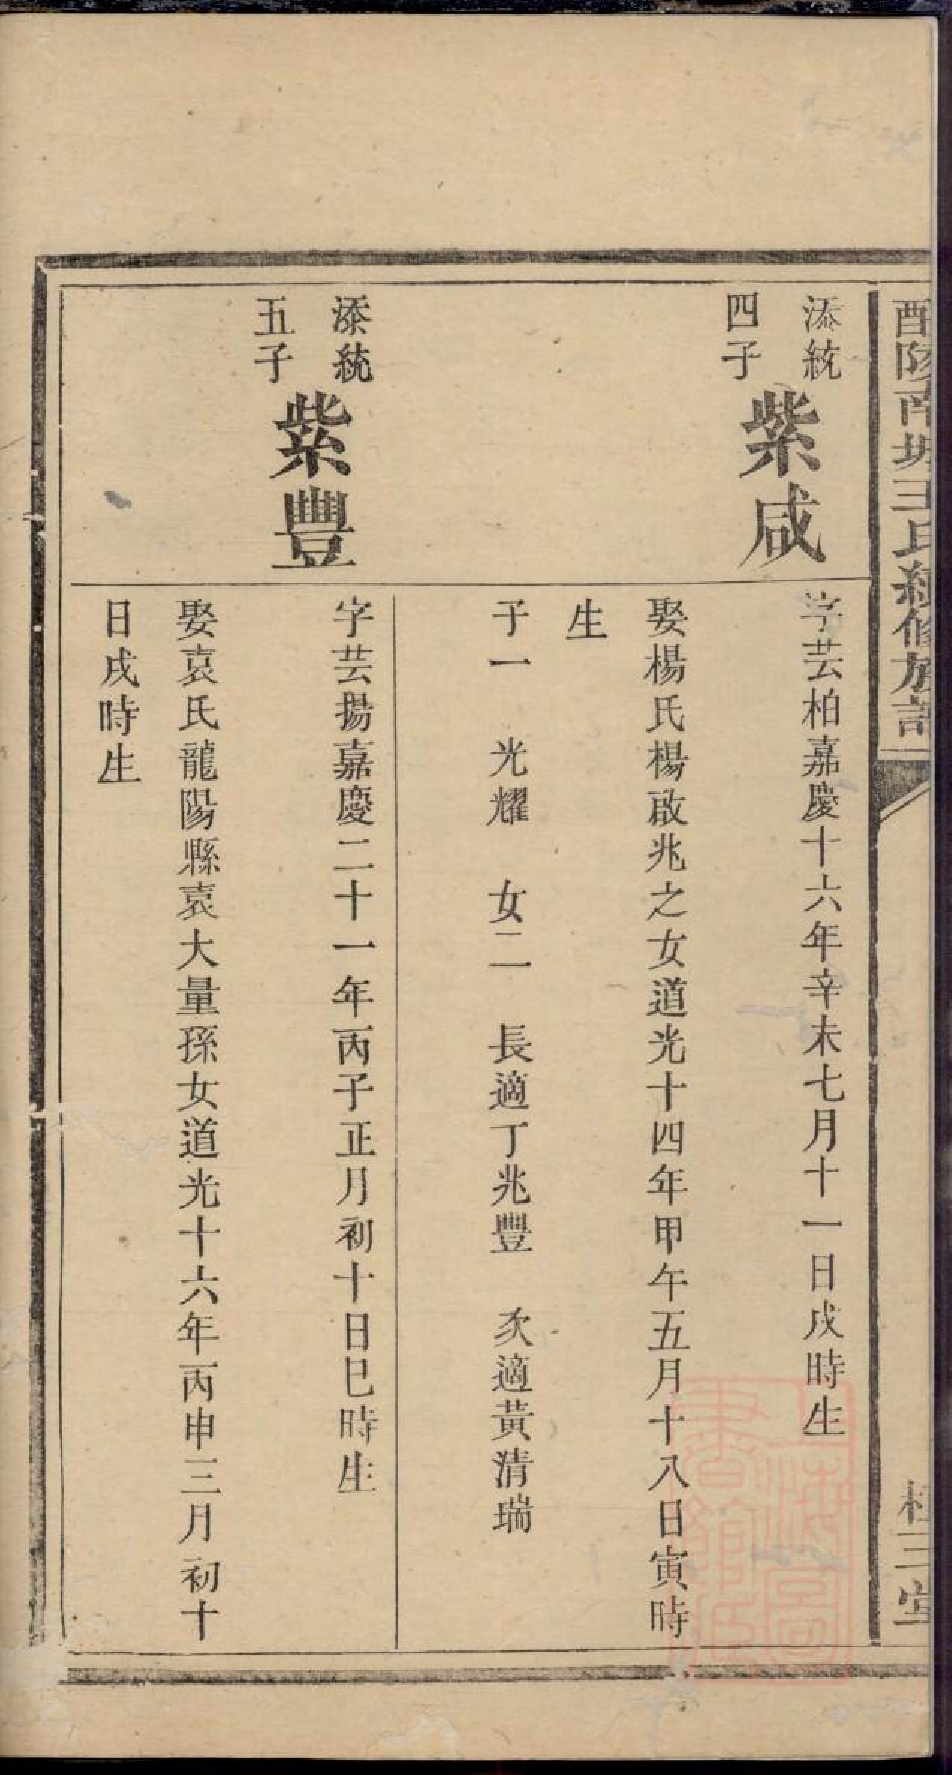 醴陵南塘王氏續修族譜
槐三堂
添統
四子
紫咸
字芸柏嘉慶十六年辛未七月十一日戌時生
娶楊氏楊啟兆之女道光十四年甲午五月十八日寅時
生
子一　光耀　女二　長適丁兆豐　次適黃清瑞
添統
五子
紫豐
字芸揚嘉慶二十一年丙子正月初十日巳時生
娶袁氏龍陽縣袁大量孫女道光十六年丙申三月初十
日戌時生